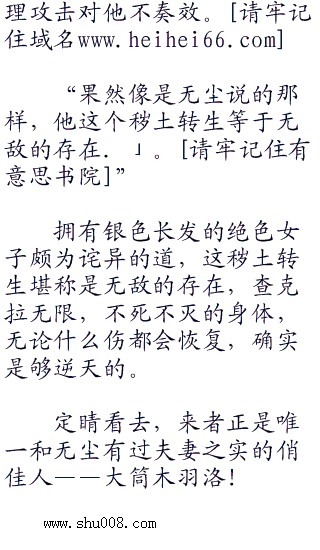 理攻击对他不奏效。[请牢记
住域名www.heihei66.com]
“果然像是无尘说的那
样，他这个秽土转生等于无
敌的存在．」。[请牢记住有
意思书院]”
拥有银色长发的绝色女
子颇为诧异的道，这秽土转
生堪称是无敌的存在，查克
拉无限，不死不灭的身体，
无论什么伤都会恢复，确实
是够逆天的。
定睛看去，来者正是唯
一和无尘有过夫妻之实的俏
佳人——大筒木羽洛！
www.shu008.com